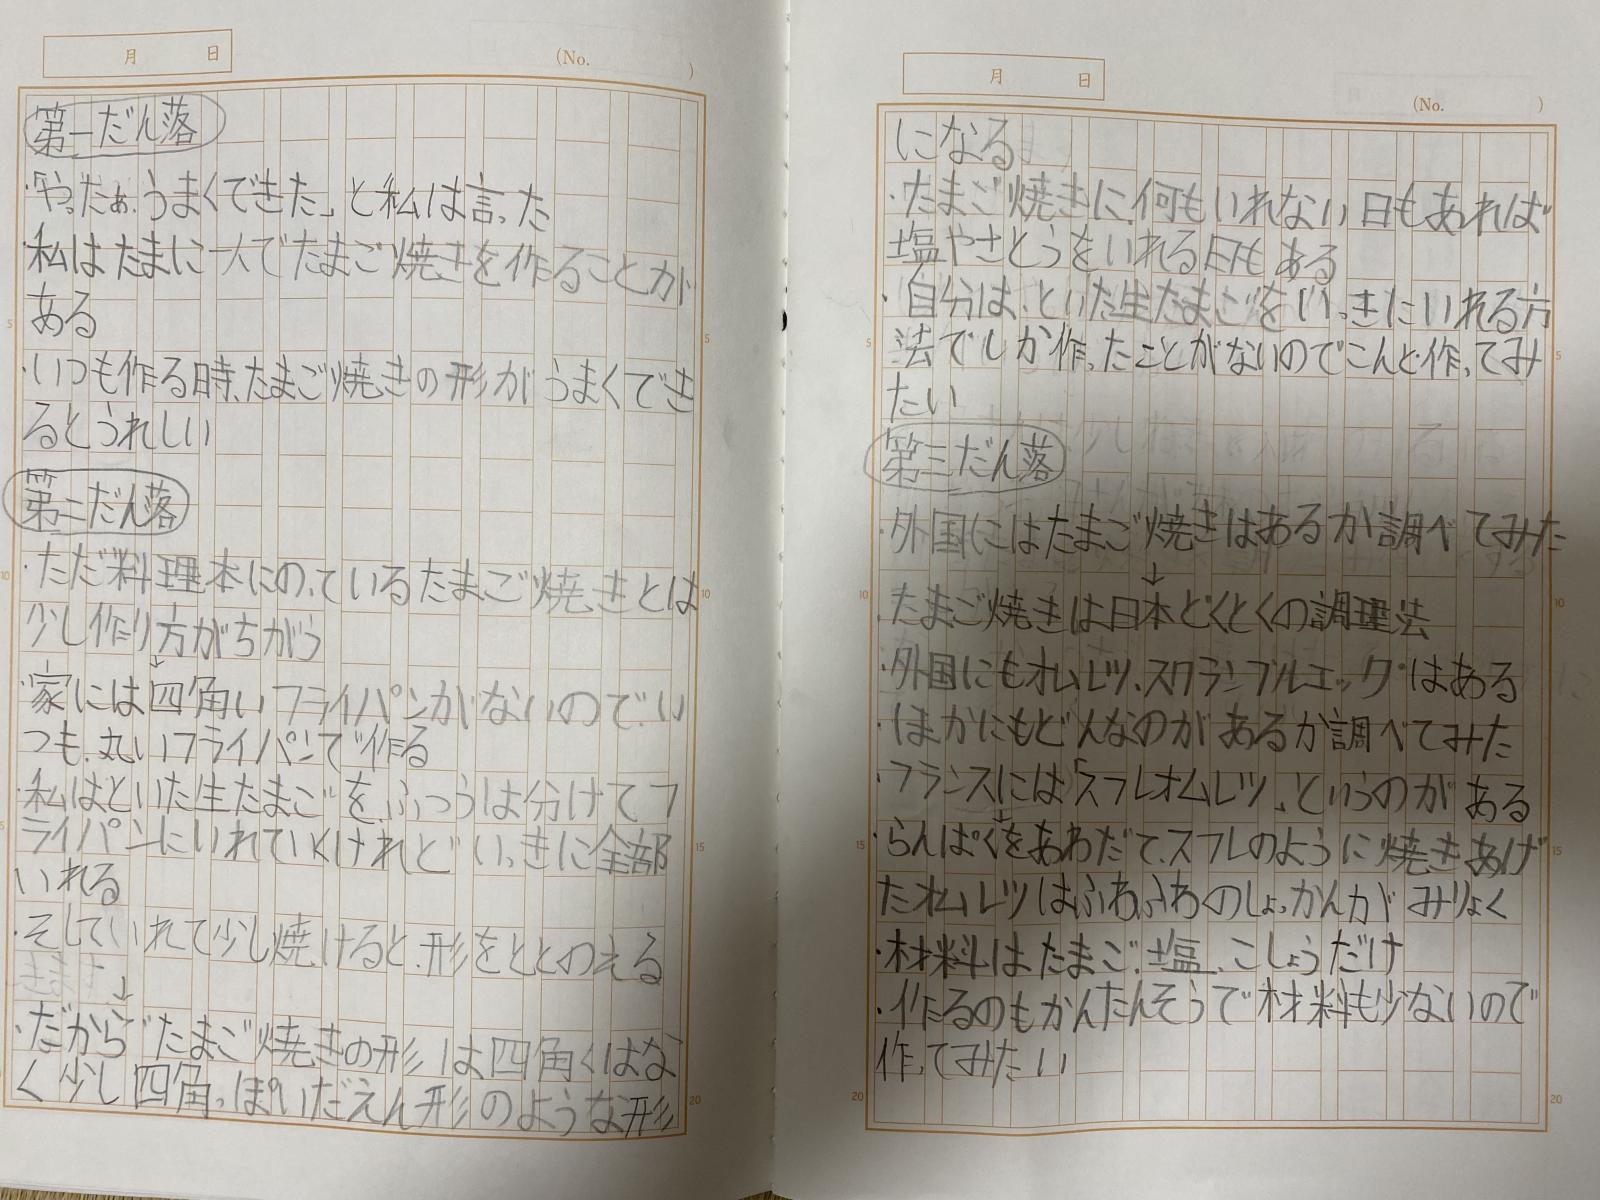 月 日
(No. )
第一だん落
・「やったぁ、うまくできた」と私は言った
・私はたまに一人でたまご焼きを作ることが
ある
・いつも作る時、たまご焼きの形がうまくでき
るとうれしい
第二だん落
・ただ料理本にのっているたまご焼きとは
少し作り方がちがう
↓
・家には四角いフライパンがないので、い
つも、丸いフライパンで作る
・私はといた生たまごを、ふつうは分けてフ
ライパンにいれていくけれど、いっきに全部
いれる
・そしていれて少し焼けると、形をととのえる
↓
・だから、たまご焼きの形は四角くはな
く少し四角っぽいだえん形のような形
5
10
15
20
月 日
(No. )
になる
・たまご焼きに、何もいれない日もあれば
塩やさとうをいれる日もある
・自分は、といた生たまごをいっきにいれる方
法でしか作ったことがないのでこんど作ってみ
たい
第三だん落
・外国にはたまご焼きはあるか調べてみた
↓
・たまご焼きは日本どくとくの調理法
・外国にもオムレツ、スクランブルエッグはある
・ほかにもどんなのがあるか調べてみた
・フランスには「スフレオムレツ」というのがある
↓
・らんぱくをあわだて、スフレのように焼きあげ
たオムレツはふわふわのしょっかんがみりょく
・材料はたまご、塩、こしょうだけ
・作るのもかんたんそうで材料も少ないので
作ってみたい
5
10
15
20